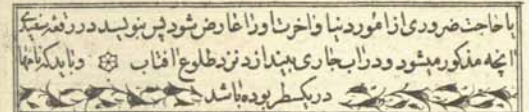 یا حاجت ضروری از امور دنیا و آخرت او را عارض شود پس بنویسد در رقعه سفیدی
آنچه مذکور میشود و در آب جاری بیندازد نزد طلوع آفتاب و باید که نامها
در یکسطر بوده باشد